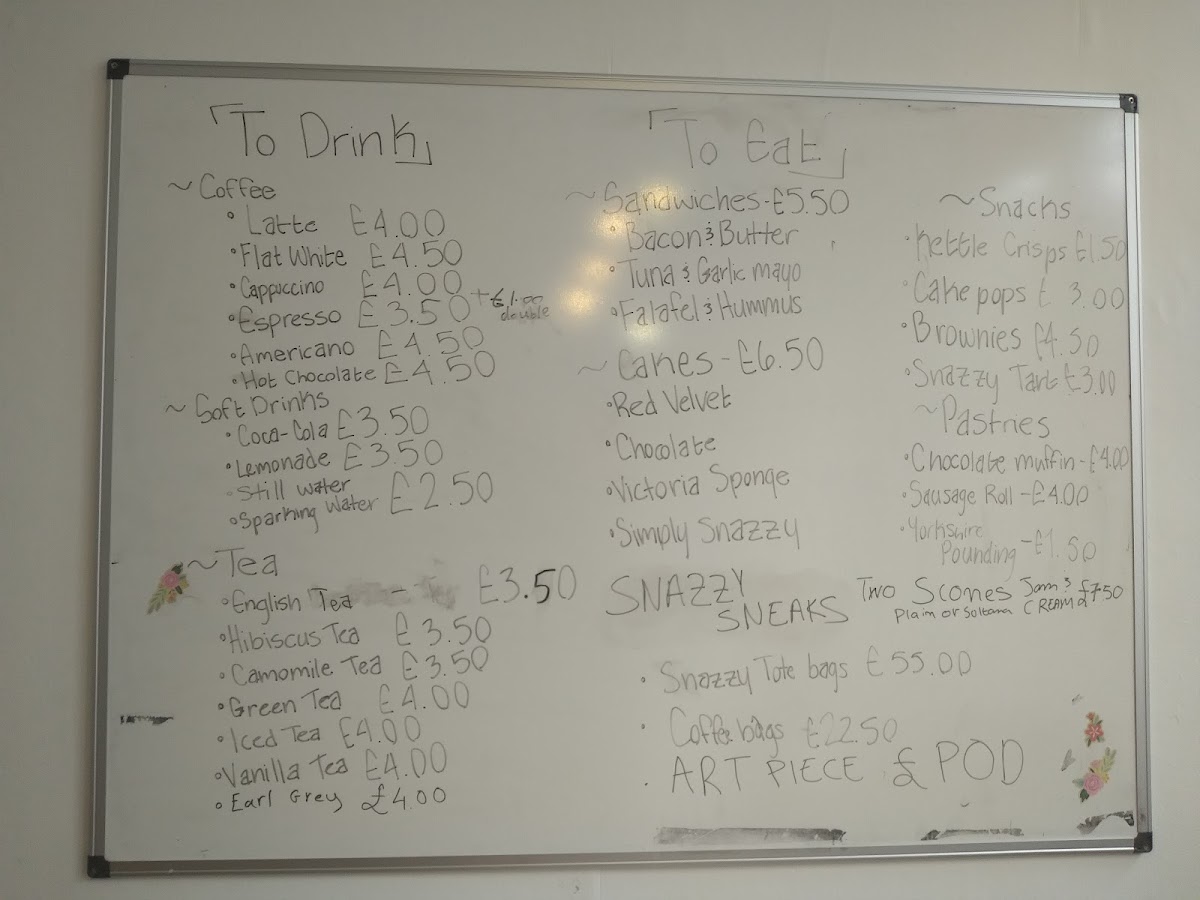 「To Drink」
~ Coffee
• Latte £4.00
• Flat White £4.50
• Cappuccino £4.00
• Espresso £3.50 + £1.00 double
• Americano £4.50
• Hot Chocolate £4.50
~ Soft Drinks
• Coca-Cola £3.50
• Lemonade £3.50
• Still water
• Sparking Water £2.50
~ Tea
• English Tea - £3.50
• Hibiscus Tea £3.50
• Camomile Tea £3.50
• Green Tea £4.00
• Iced Tea £4.00
• Vanilla Tea £4.00
• Earl Grey £4.00
「To Eat」
~ Sandwiches - £5.50
• Bacon & Butter
• Tuna & Garlic mayo
• Falafel & Hummus
~ Cakes - £6.50
• Red Velvet
• Chocolate
• Victoria Sponge
• Simply Snazzy
~ Snacks
• Kettle Crisps £1.50
• Cake pops £3.00
• Brownies £4.50
• Snazzy Tart £3.00
~ Pastries
• Chocolate muffin - £4.00
• Sausage Roll - £4.00
• Yorkshire
Pounding - £1.50
Two Scones Jam & £7.50
Plain or Soltana CREAM
SNAZZY
SNEAKS
• Snazzy Tote bags £55.00
• Coffee bags £22.50
• ART PIECE £ POD